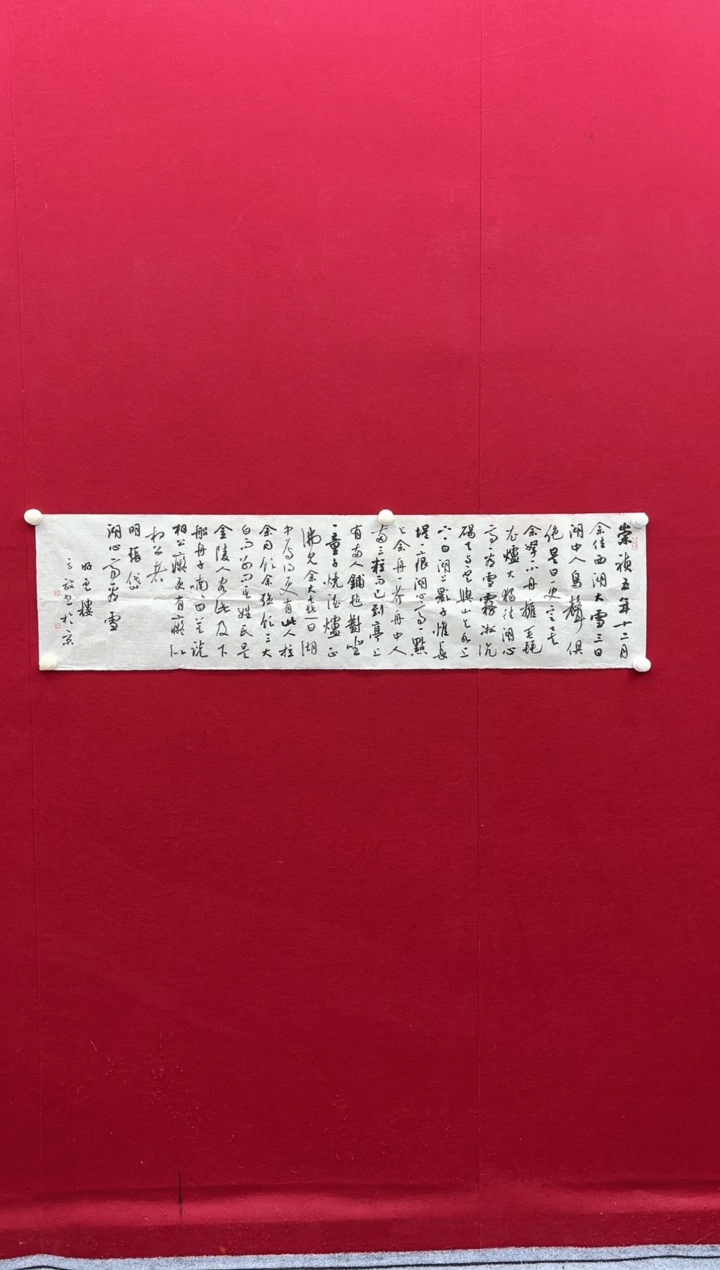 崇禎五年十二月
余住西湖大雪三日
湖中人鳥聲俱
絶是日更定矣
余拏小舟擁毳
衣爐火獨往湖心
亭看雪霧凇沆
碭天與雲與山與水上
下一白湖上影子惟長
堤一痕湖心亭一點
與余舟一芥舟中人
兩三粒而已到亭上
有兩人鋪氈對坐
一童子燒酒爐正
沸見余大喜曰湖
中焉得更有此人拉
余同飲余強飲三大
白而別問其姓氏是
金陵人客此及下
船舟子喃喃曰莫説
相公癡更有癡似
相公者
明張岱
湖心亭看雪
於京